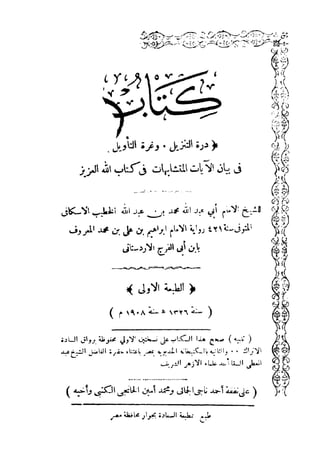 كتاب
﴿ درة التنزيل ٠ وغرة التأويل ﴾
فى بيان الآيات المتشابهات فى كتاب الله العزيز
للشيخ الامام أبي عبد الله محمد بن عبد الله الخطيب الاسكافي
المتوفى سنة ٤٢١ رواية الامام ابراهيم بن علي بن محمد المعروف
بابن أبى الفرج الاردستانى
﴿ الطبعة الاولى ﴾
( سنة ١٣٢٦ ه سنة ١٩٠٨ م )
( تنبيه ) صحح هذا الكتاب على نسختين الاولي محفوظة برواق السادة
الاتراك ٠٠ والثانية بالكتبخانه الخديويه بمصر باعتناء حضرة الفاضل الشيخ عبد
المعطى السقا أحد علماء الازهر الشريف
( على نفقة أحمد ناجى الجمالى ومحمد أمين الخانجى الكتبى وأخيه )
طبع بمطبعة السعادة بجوار محافظة مصر